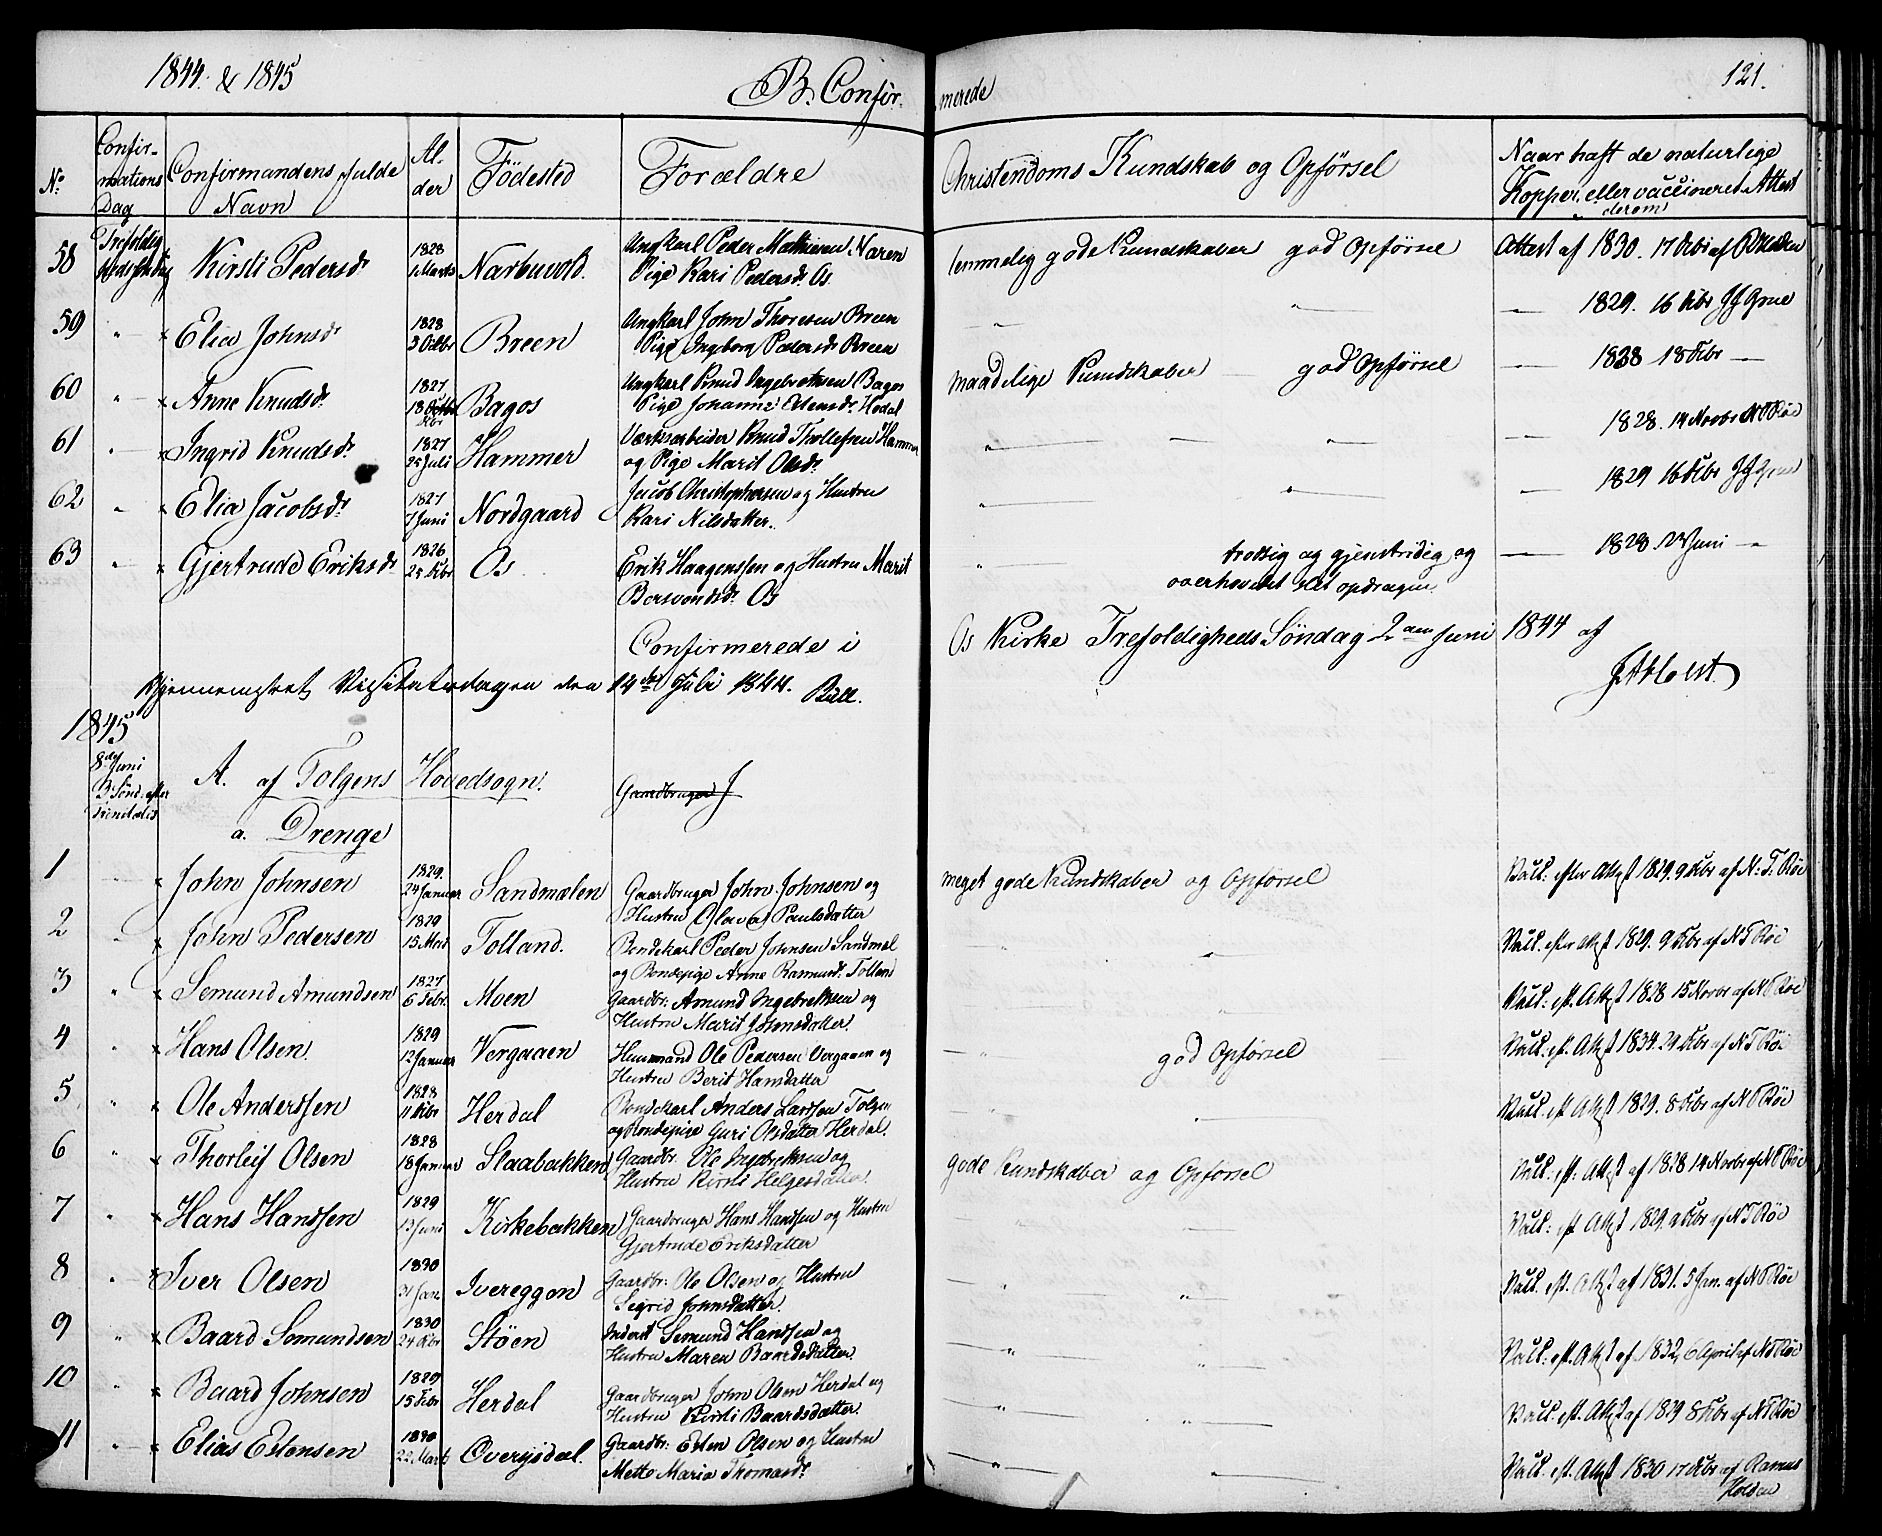 1844. & 1845
B. Confir-
merede
121.
No.
Confir-
mations
Dag
Confirmandens fulde
Navn
Al-
der
Födested
Forældre
Christendoms Kundskab og Opförsel
Naar haft de naturlige
Kopper, eller vaccineret. Attest
derom
58 Trefoldig- Kirsti Pedersdr 1828 Marts Narbuvold. Ungkarl Peder Mathisen Naren
Pige Kari Pedersdr Os.
temmelig gode Kundskaber god Opförsel Attest af 1830. 17 Dcbr af R Holden
59 " Elia Johnsdr 1828 3 Octbr Breen Ungkarl John Thoresen Breen
Pige Ingeborg Pedersdr Breen
" " 1829. 16 Dcbr
60 " Anne Knudsdr. 1827. 18 Dcbr Bagos Ungkarl Knud Ingebrethsen Bagos
Pige Johanne Estensdr. Hodal
maadelige Kundskaber god Opförsel 1828 18 Dcbr
61 " Ingrid Knudsdr. 1827 25 Juli Hammer Værksarbeider Knud Thollefsen Hammer
og Pige Marit Olsdr.
" " 1828. 14 Novbr N T Röe
62 " Elia Jacobsdr. 1827 7 Juni Nordgaard Jacob Christophersen og Hustru
Kari Nilsdatter.
" " 1829 16 Dcbr
63 " Gjertrude Eriksdr 1826 25 Dcbr Os Erik Haagenssen og Hustru Marit
Bersvendsdr. Os
" trodsig og gjenstridig og
overhovedet slet opdragen. 1828. Juni
Confirmerede i
Os Kirke Trefoldigheds Söndag 2den Juni 1844 af
J A Holst.
Gjennemseet Visitatsdagen den 14de Juli 1844. Bull.
1845
8de Juni
3. Sönd. efter
Trinitatis
A. af Tolgens Hovedsogn.
Gaardbruger J
a. Drenge
1 John Johnsen 1829. 24 Januar Sandmælen Gaardbruger John Johnsen og
Hustru Olava Paulsdatter
meget gode Kundskaber og Opförsel Vacc. efter Attest 1829. 9 Dcbr af N. T. Röe
2 John Pedersen 1829 15 Tolland. Bondekarl Peder Johnsen Sandmæl
og Bondepige Anne Rasmusdr. Tolland
" " Vacc. efter Attest 1829. 9 Dcbr af N T Röe
3 " Semund Amundsen 1827 6 Febr. Moen Gaardbr: Amund Ingebrektsen og
Hustru Marit Johnsdatter.
" Vacc: eft. Attest 1828 15 Novbr af N T Röe
4 " Hans Olsen. 1829 12 Januar Vergaaen Huusmand Ole Pedersen Vergaaen og
Hustru Berit Hansdatter
" god Opförsel Vacc: eft. Attest 1834. 29 Dcbr af N T Röe
5 " Ole Anderssen 1828 11 Dcbr Herdal Bondekarl Anders Larssen Tolgen
og Bondepige Guri Olsdatter Herdal.
" Vacc. eft Attest 1829. 8 Dcbr af N T Röe
6 " Thorleif Olsen 1828 18 Januar Slaabakken Gaardbr. Ole Ingebrektsen og
Hustru Kirsti Helgesdatter.
gode Kundskaber og Opförsel Vacc. eft: Attest af 1828 14 Novbr af N T Röe
7 " Hans Hanssen 1829 13 Juni Kirkebakken Gaardbruger Hans Hanssen og Hustru
Gjertrude Eriksdatter
" " Vacc: eft Attest 1829. 9 Dcbr af N T Röe
8 " Iver Olsen 1830 31 Jan. Ivereggen Gaardbr: Ole Olsen og Hustru
Sigrid Johnsdatter.
" " Vacc. eft. Attest af 1831. 5 Jan. af N T Röe
9 " Baard Semundsen 1830 24 Dcbr Stöen Inderst Semund Hanssen og
Hustru Maren Baardsdatter.
" " Vacc: eft. Attest af 1832, 6 April af N T Röe
10 " Baard Johnsen 1829 15 Dcbr Herdal Gaardbruger John Olsen Herdal og
Hustru Kirsti Baardsdatter.
" " Vacc. eft. Attest af 1829 8 Dcbr af N T Röe
11 " Elias Estensen 1830 22 Marts Oversjödal. Gaardbr: Esten Olsen og Hustru
Mette Maria Thomasdr.
" " Vacc. eft. Attest 1830 17 Dcbr af Rasmus
Holden